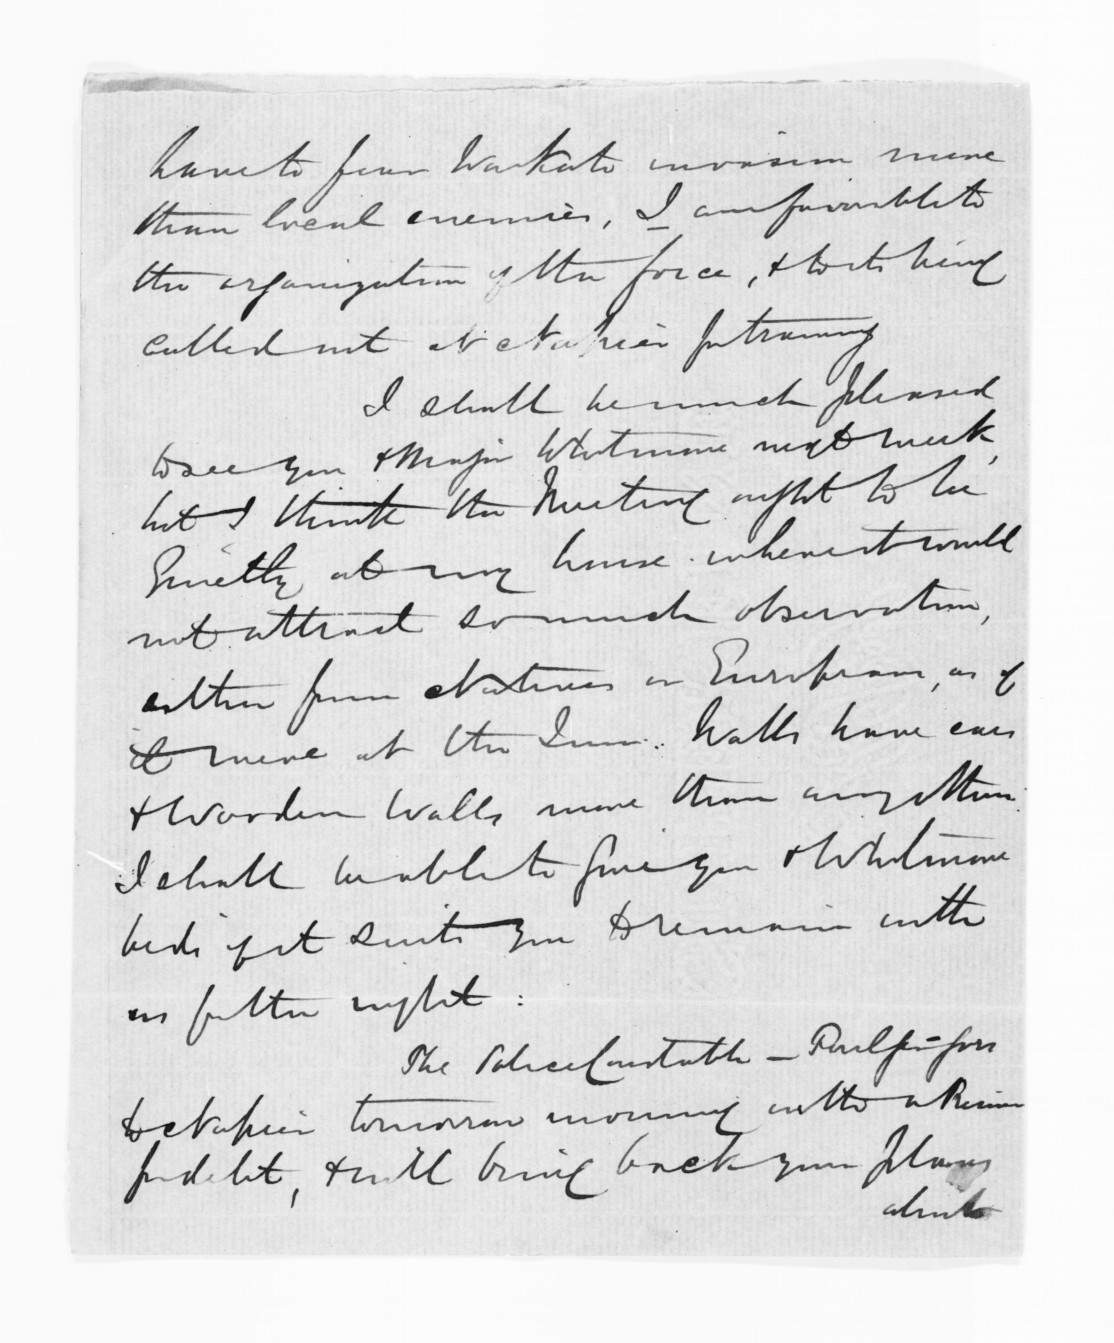 have to fear Waikato invasion more
than local enemies, I am favorable to
the organization of the force, & to its being
called out at Napier for training
I shall be much pleased
to see you & Major Whitmore next week,
but I think the Meeting ought to be
Quietly at my house where it would
not attract so much observation,
either from Natives or Europeans, as if
it were at the Inn. Walls have ears
& Wooden Walls more than any other
I shall be able to give you & Whitmore
beds if it suits you to remain with
us for the night :
The Police Constable – goes
to Napier tomorrow morning with a
for debt, & will bring back your plans
about